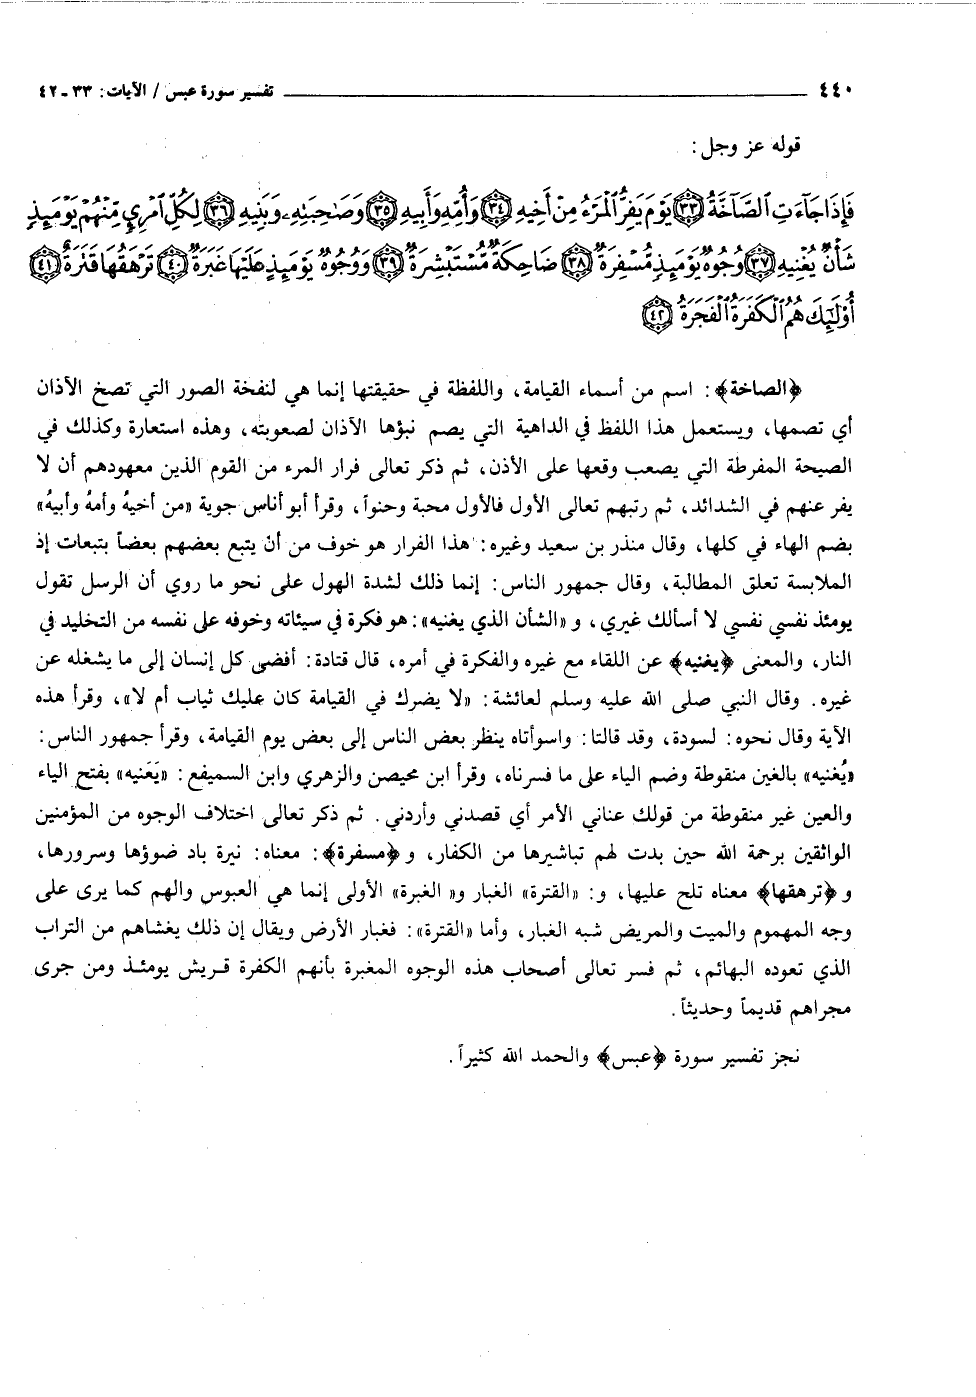 ٤٤٠ ـــــــ تفسير سورة عبس / الآيات: ٣٣ - ٤٢
قوله عز وجل:
فَإِذَا جَآءَتِ ٱلصَّآخَّةُ ﴿٣٣﴾ يَوْمَ يَفِرُّ ٱلْمَرْءُ مِنْ أَخِيهِ ﴿٣٤﴾ وَأُمِّهِۦ وَأَبِيهِ ﴿٣٥﴾ وَصَٰحِبَتِهِۦ وَبَنِيهِ ﴿٣٦﴾ لِكُلِّ ٱمْرِىءٍ مِّنْهُمْ يَوْمَئِذٍ
شَأْنٌ يُغْنِيهِ ﴿٣٧﴾ وُجُوهٌ يَوْمَئِذٍ مُّسْفِرَةٌ ﴿٣٨﴾ ضَاحِكَةٌ مُّسْتَبْشِرَةٌ ﴿٣٩﴾ وَوُجُوهٌ يَوْمَئِذٍ عَلَيْهَا غَبَرَةٌ ﴿٤٠﴾ تَرْهَقُهَا قَتَرَةٌ ﴿٤١﴾
أُوْلَٰٓئِكَ هُمُ ٱلْكَفَرَةُ ٱلْفَجَرَةُ ﴿٤٢﴾
﴿الصاخة﴾: اسم من أسماء القيامة، واللفظة في حقيقتها إنما هي لنفخة الصور التي تصخ الآذان
أي تصمها، ويستعمل هذا اللفظ في الداهية التي يصم نبؤها الآذان لصعوبته، وهذه استعارة وكذلك في
الصيحة المفرطة التي يصعب وقعها على الأذن، ثم ذكر تعالى فرار المرء من القوم الذين معهودهم أن لا
يفر عنهم في الشدائد، ثم رتبهم تعالى الأول فالأول محبة وحنواً، وقرأ أبو أناس جوية «من أخيهُ وأمهُ وأبيهُ»
بضم الهاء في كلها، وقال منذر بن سعيد وغيره: هذا الفرار هو خوف من أن يتبع بعضهم بعضاً بتبعات إذ
الملابسة تعلق المطالبة، وقال جمهور الناس: إنما ذلك لشدة الهول على نحو ما روي أن الرسل تقول
يومئذ نفسي نفسي لا أسألك غيري، و «الشأن الذي يغنيه»: هو فكرة في سيئاته وخوفه على نفسه من التخليد في
النار، والمعنى ﴿يغنيه﴾ عن اللقاء مع غيره والفكرة في أمره، قال قتادة: أفضى كل إنسان إلى ما يشغله عن
غيره. وقال النبي صلى الله عليه وسلم لعائشة: «لا يضرك في القيامة كان عليك ثياب أم لا»، وقرأ هذه
الآية وقال نحوه: لسودة، وقد قالتا: واسوأتاه ينظر بعض الناس إلى بعض يوم القيامة، وقرأ جمهور الناس:
«يُغنيه» بالغين منقوطة وضم الياء على ما فسرناه، وقرأ ابن محيصن والزهري وابن السميفع: «يَعَنيه» بفتح الياء
والعين غير منقوطة من قولك عناني الأمر أي قصدني وأردني. ثم ذكر تعالى اختلاف الوجوه من المؤمنين
الواثقين برحمة الله حين بدت لهم تباشيرها من الكفار، و ﴿مسفرة﴾: معناه: نيرة باد ضوؤها وسرورها،
و ﴿ترهقها﴾ معناه تلح عليها، و: «القترة» الغبار و« الغبرة» الأولى إنما هي العبوس والهم كما يرى على
وجه المهموم والميت والمريض شبه الغبار، وأما «القترة»: فغبار الأرض ويقال إن ذلك يغشاهم من التراب
الذي تعوده البهائم، ثم فسر تعالى أصحاب هذه الوجوه المغبرة بأنهم الكفرة قريش يومئذ ومن جرى
مجراهم قديماً وحديثاً.
نجز تفسير سورة ﴿عبس﴾ والحمد الله كثيراً.